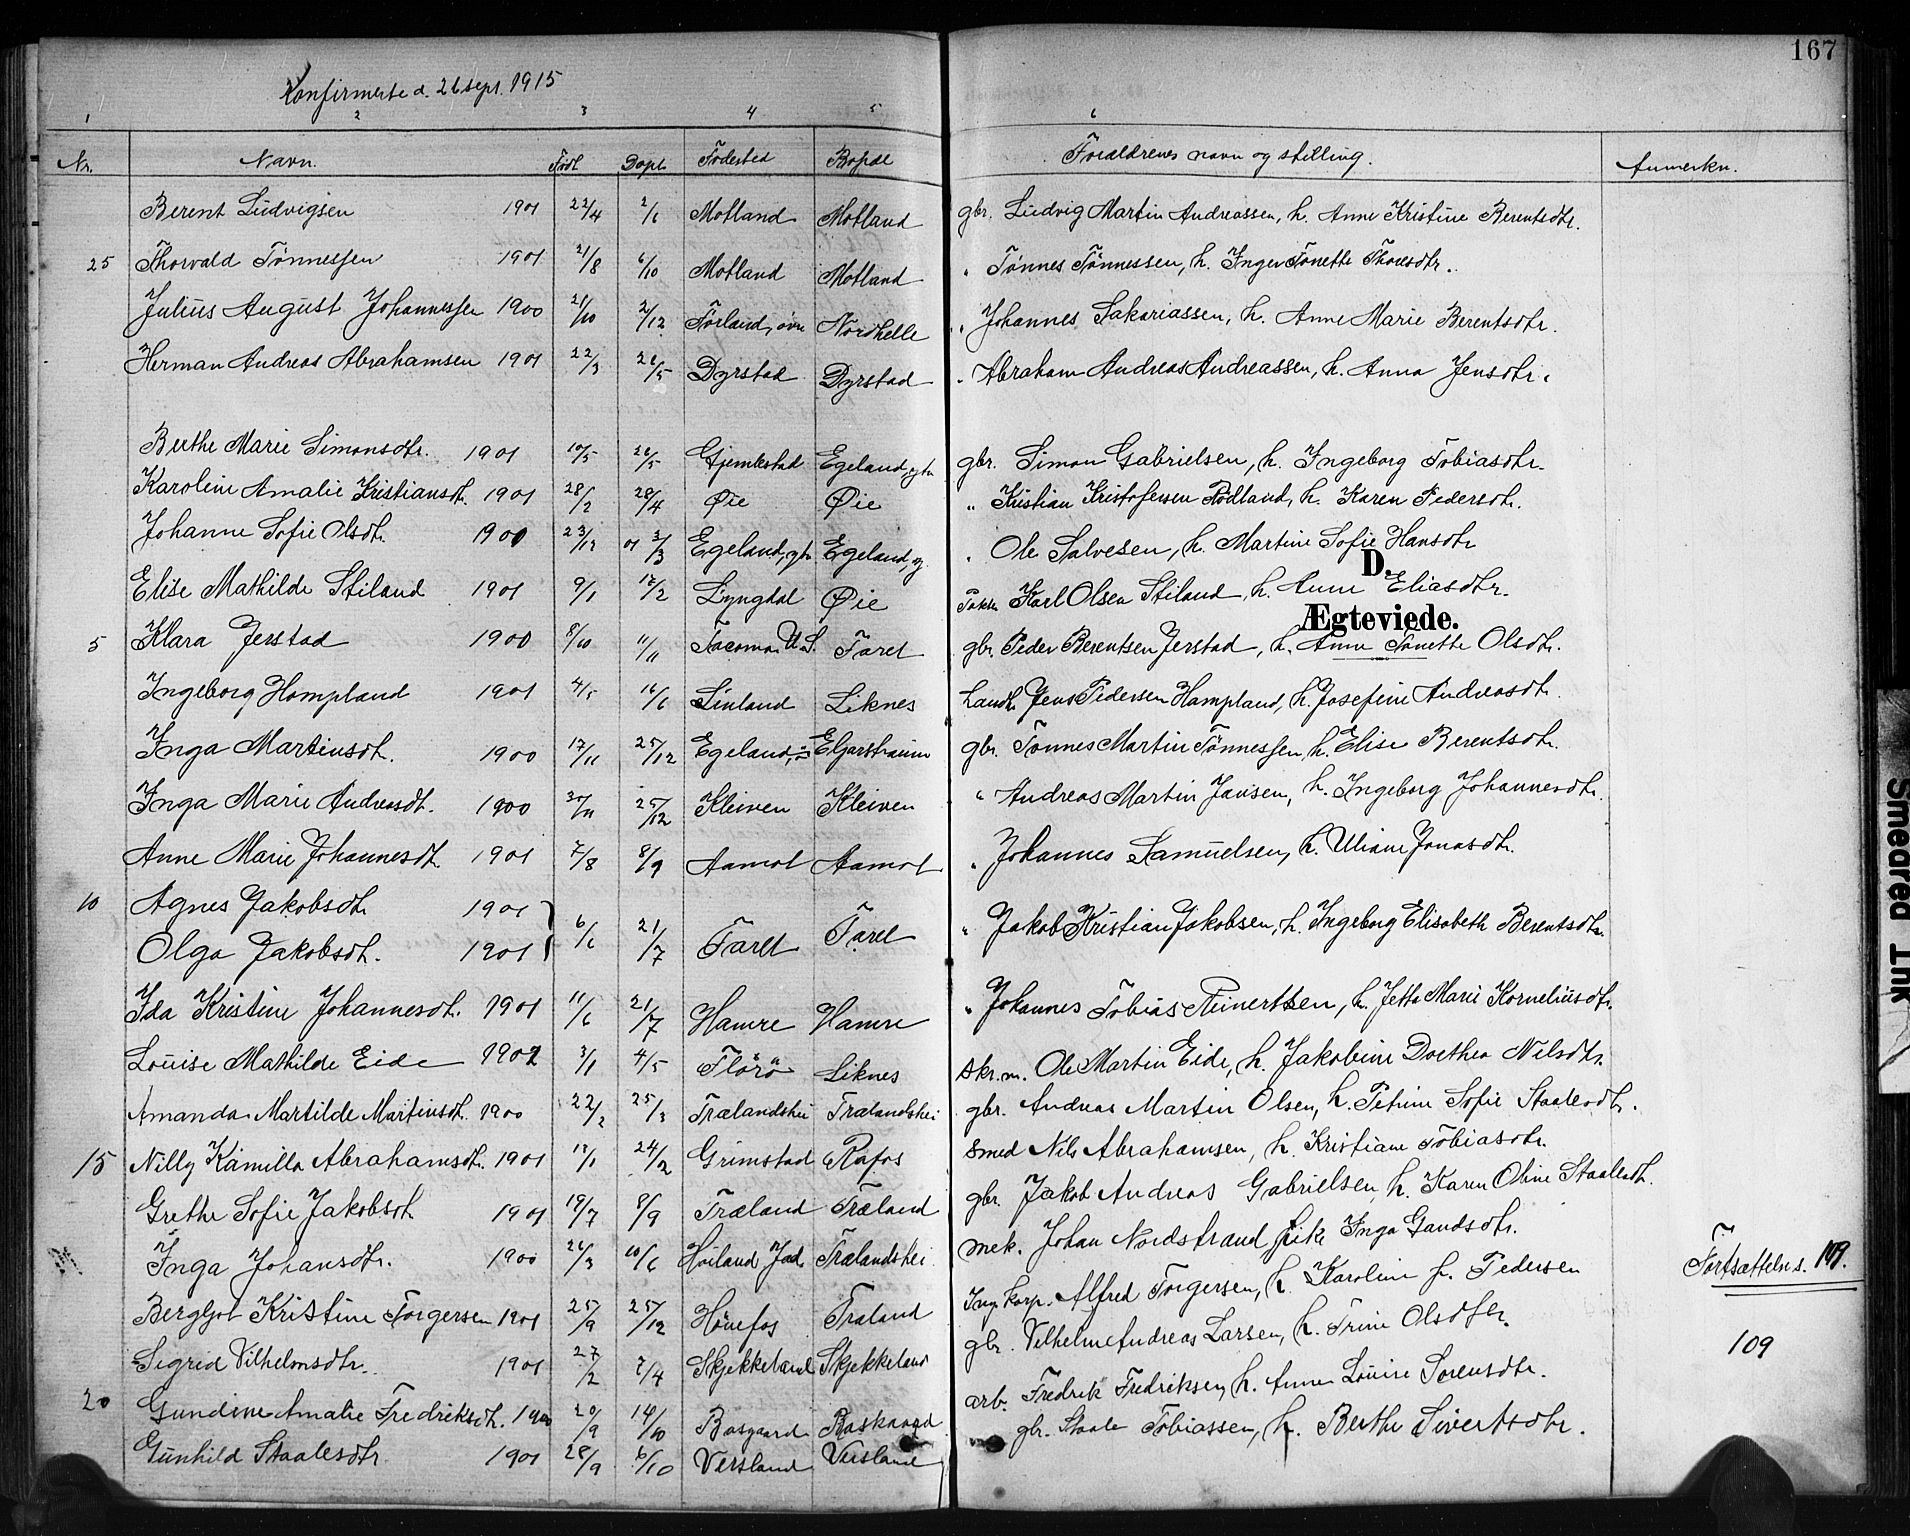 167
Konfirmerte d. 26 sept. 1915
1 2 3 4 5 6
Nr. Navn. Født Døpt Fødested Bopæl Forældrenes navn og stilling. Anmerkn.
Berent Ludvigsen 1901 22/4 2/6 Motland Motland gbr. Ludvig Martin Andreassen, h. Anne Kristine Berentsdtr.
25 Thorvald Tønnessen 1901 21/8 6/10 Motland Motland " Tønnes Tønnessen, h. Inger Tonette Thoresdtr.
Julius August Johannessen 1900 21/10 2/12 Førland, øvre Nordhelle " Johannes Sakariassen, h. Anne Marie Berentsdtr.
Herman Andreas Abrahamsen 1901 22/3 26/5 Dyrstad Dyrstad " Abraham Andreas Andreassen, h. Anna Jensdtr.
Berthe Marie Simonsdtr. 1901 10/5 26/5 Gjemlestad Egeland, ytr gbr. Simon Gabrielsen, h. Ingeborg Tobiasdtr.
Karoline Amalie Kristiansdt. 1901 28/2 28/4 Øie Øie " Kristian Kristofersen Rødland, h. Karen Pedersdtr.
Johanne Sofie Olsdtr. 1900 23/12 01 3/3 Egeland, ytr Egeland, y " Ole Salvesen, h. Martine Sofie Hansdtr
D.
Elise Mathilde Stiland 1901 9/1 17/2 Lyngdal Øie Karl Olsen Stiland, h. Anne Eliasdtr.
Ægteviede.
5 Klara Jerstad 1900 8/10 11/11 Tacoma U.S. Faret gbr. Peder Berentsen Jerstad, h. Anne Tonette Olsdtr.
Ingeborg Hompland 1901 4/5 16/6 Linland Liknes Landh. Jens Pedersen Hompland, h. Josefine Andreasdtr.
Inga Martinsdt. 1900 17/11 25/12 Egeland, i. gbr. Tønnes Martin Tønnessen, h. Elise Berentsdtr.
Inga Marie Andreasdt. 1900 30/11 25/12 Kleiven Kleiven " Andreas Martin Jansen, h. Ingeborg Johannesdtr.
Anne Marie Johannesdt. 1901 7/8 8/9 Aamot Aamot " Johannes Samuelsen, h. Uliane Jonasdtr.
10 Agnes Jakobsdtr 1901
Olga Jakobsdt. 1901 6/6 21/7 Faret Faret " Jakob Kristian Jakobsen, h. Ingeborg Elisabeth Berentsdtr.
Ida Kristine Johannesdt. 1901 11/6 21/7 Hamre Hamre " Johannes Tobias Reinertsen, h. Jette Marie Korneliusdtr.
Louise Mathilde Eide 1902 3/1 4/5 Florö Liknes skr.m. Ole Martin Eide, h. Jakobine Dorthea Nilsdtr.
Amanda Martilde Martinsdt. 1900 22/2 25/3 Trælandshei Trælandshei gbr. Andreas Martin Olsen, h. Petrine Sofie Staalesdtr.
15 Nilly Kamilla Abrahamsdtr. 1901 17/1 24/2 Grimstad Rafos Smed Nils Abrahamsen, h. Kristiane Tobiasdtr.
Grethe Sofie Jakobsdt 1901 19/7 8/9 Træland Træland gbr. Jakob Andreas Gabrielsen, h. Karen Oline Staalesdt.
Inga Johansdtr. 1900 26/3 10/6 Høiland, Jæd. Trælandshei mek. Johan Nordstrand, pike Inga Gandsdtr.
Fortsættelse s. 109.
Bergljot Kristine Torgersen 1901 25/9 25/12 Hønefos Træland Ing. korp. Alfred Torgersen, h. Karoline f. Pedersen
109
Sigrid Vilhelmsdtr. 1901 27/2 7/4 Skjekkeland Skjekkeland gbr. Vilhelm Andreas Larsen, h. Trine Olsdtr.
20 Gundine Amalie Fredriksdt. 1900 20/9 14/10 Bosgaard arb. Fredrik Fredriksen, h. Anne Louise Sørensdtr.
Gunhild Staalesdtr. 1901 28/9 6/10 Versland Versland gbr. Staale Tobiassen, h. Berthe Sivertsdtr.
Smeared Ink